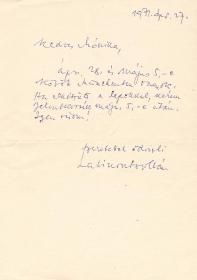 1971. ápr. 27.
Kedves Mónika,
Ápr. 28. és május 5.-e
között Münchenben vagyok.
Ha elküldte a lapokat, kérem
jelentkezzék május 5.-e után.
Igen várom!
Szeretettel üdvözli
Latinovits Zoltán